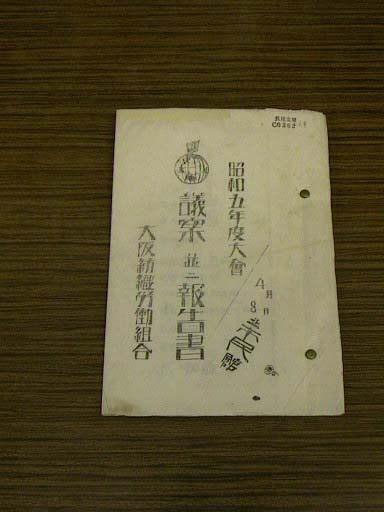 昭和五年度大會
4月8日
天民館
議案並ニ報告書
大阪紡織労働組合